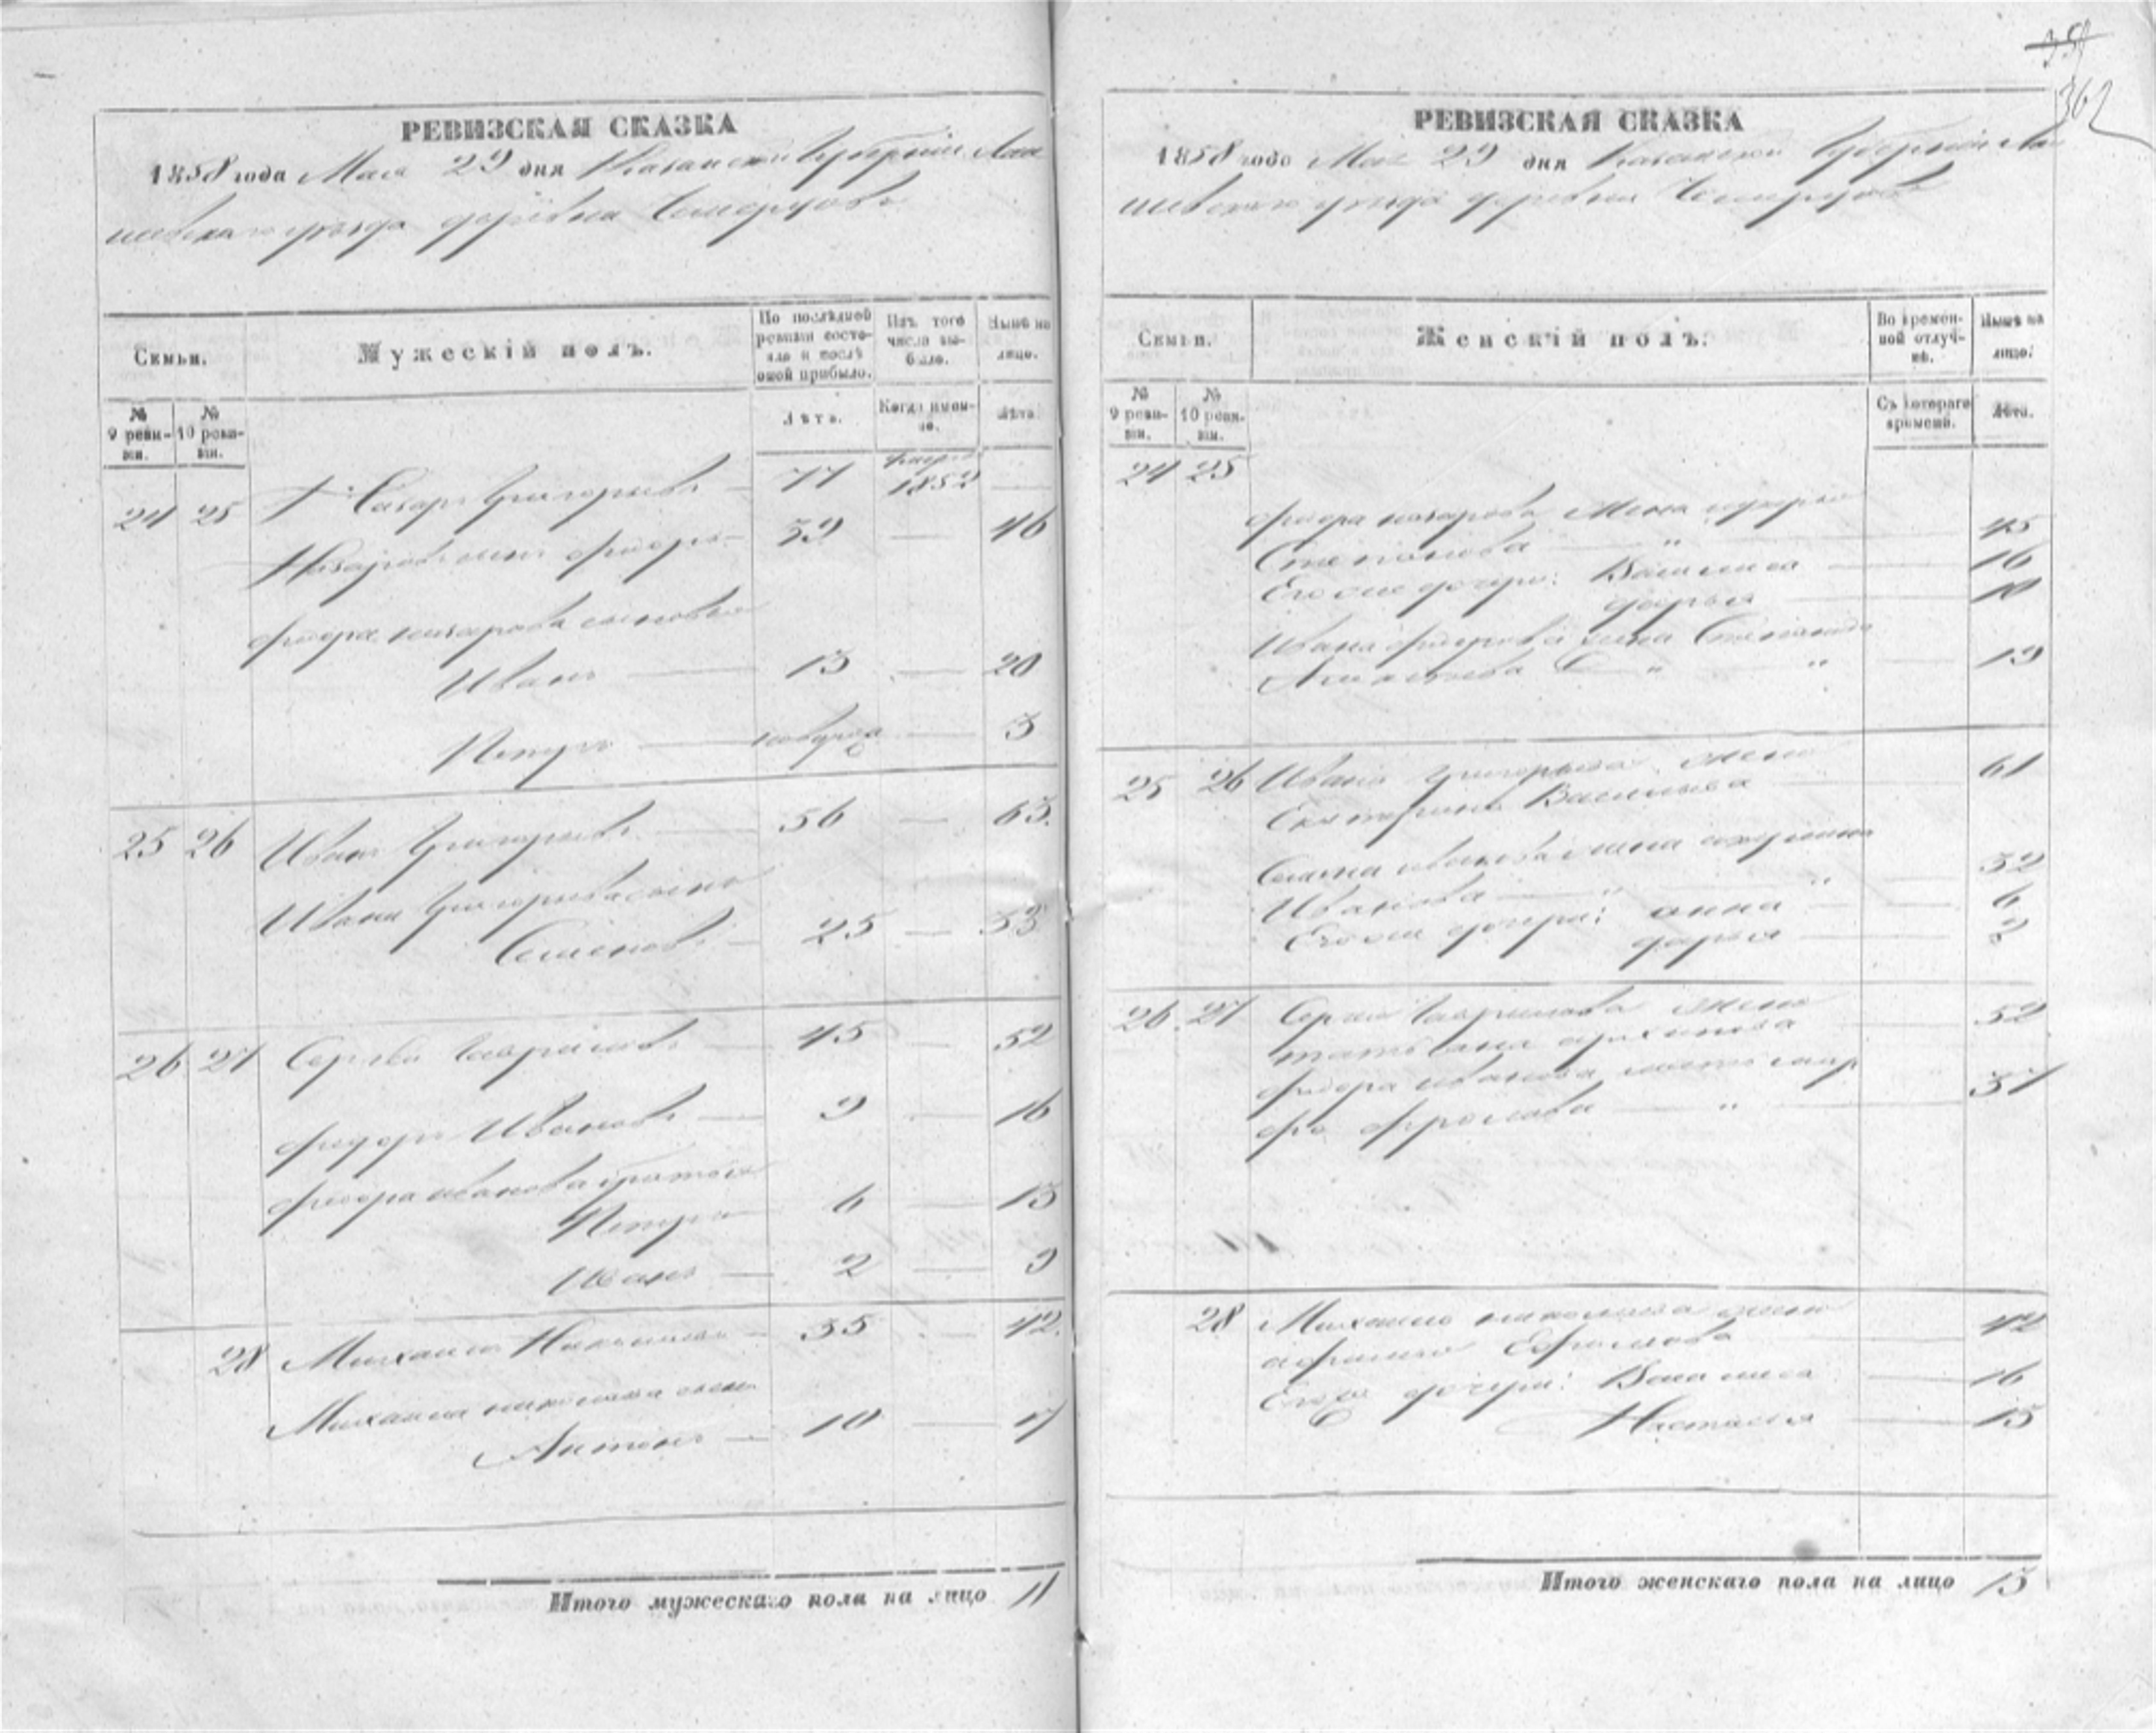 РЕВИЗСКАЯ СКАЗКА
1858 года Мая 29 дня Казанской Губернiи Лаи
шевскаго уезда деревни Чемерцовъ
Семьи.
Мужескій полъ.
По послѣдней ревизiи состояло и послѣ оной прибыло.
Изъ того числа выбыло.
Нынѣ на лицо.
№ 9 ревизiи.
№ 10 ревизiи.
Лѣтъ.
Когда именно.
Лѣта.
24 25 Назаръ Григорьевъ 77 1852
Назаровъ сынъ Федоръ 39 46
Федора Назарова сыновья
Иванъ 13 20
Петръ новорож 3
25 26 Иванъ Григорьевъ 56 63.
Ивана Григорьева сынъ
Семенъ 25 33
26 27 Сергей Гавриловъ 45 52
Федоръ Ивановъ 9 16
Федора Иванова братья
Петръ 6 13
Иванъ 2 9
28 Михаила Николаевъ 35 42.
Михаила Николаева сынъ
Антонъ 10 17
Итого мужескаго пола на лицо 11
359
362
РЕВИЗСКАЯ СКАЗКА
1858 года Мая 29 дня Казанской Губернiи Лаи
шевскаго уезда деревни Чемерцовъ
Семьи.
Женскій полъ.
Во временной отлучкѣ.
Нынѣ на лицо.
№ 9 ревизiи.
№ 10 ревизiи.
Съ котораго времени.
Лѣта.
24 25
Федора Назарова жена
Степанова " 45
Его же дочери: Василиса 16
Дарья 10
Ивана Федорова жена Степанида
" " 19
25 26 Ивана Григорьева жена 61
Екатерина Васильева
Семена Иванова жена Акулина
Иванова " " 32
Его же дочери: Анна 6
Дарья 2
26 27 Сергея Гаврилова жена 52
Татьяна Архипова
Федора Иванова мать Мар
фа Фролова " 37
28 Михаила Николаева жена 42
Афимья Ефимова
Его же дочери: Василиса 16
Настасья 13
Итого женскаго пола на лицо 13